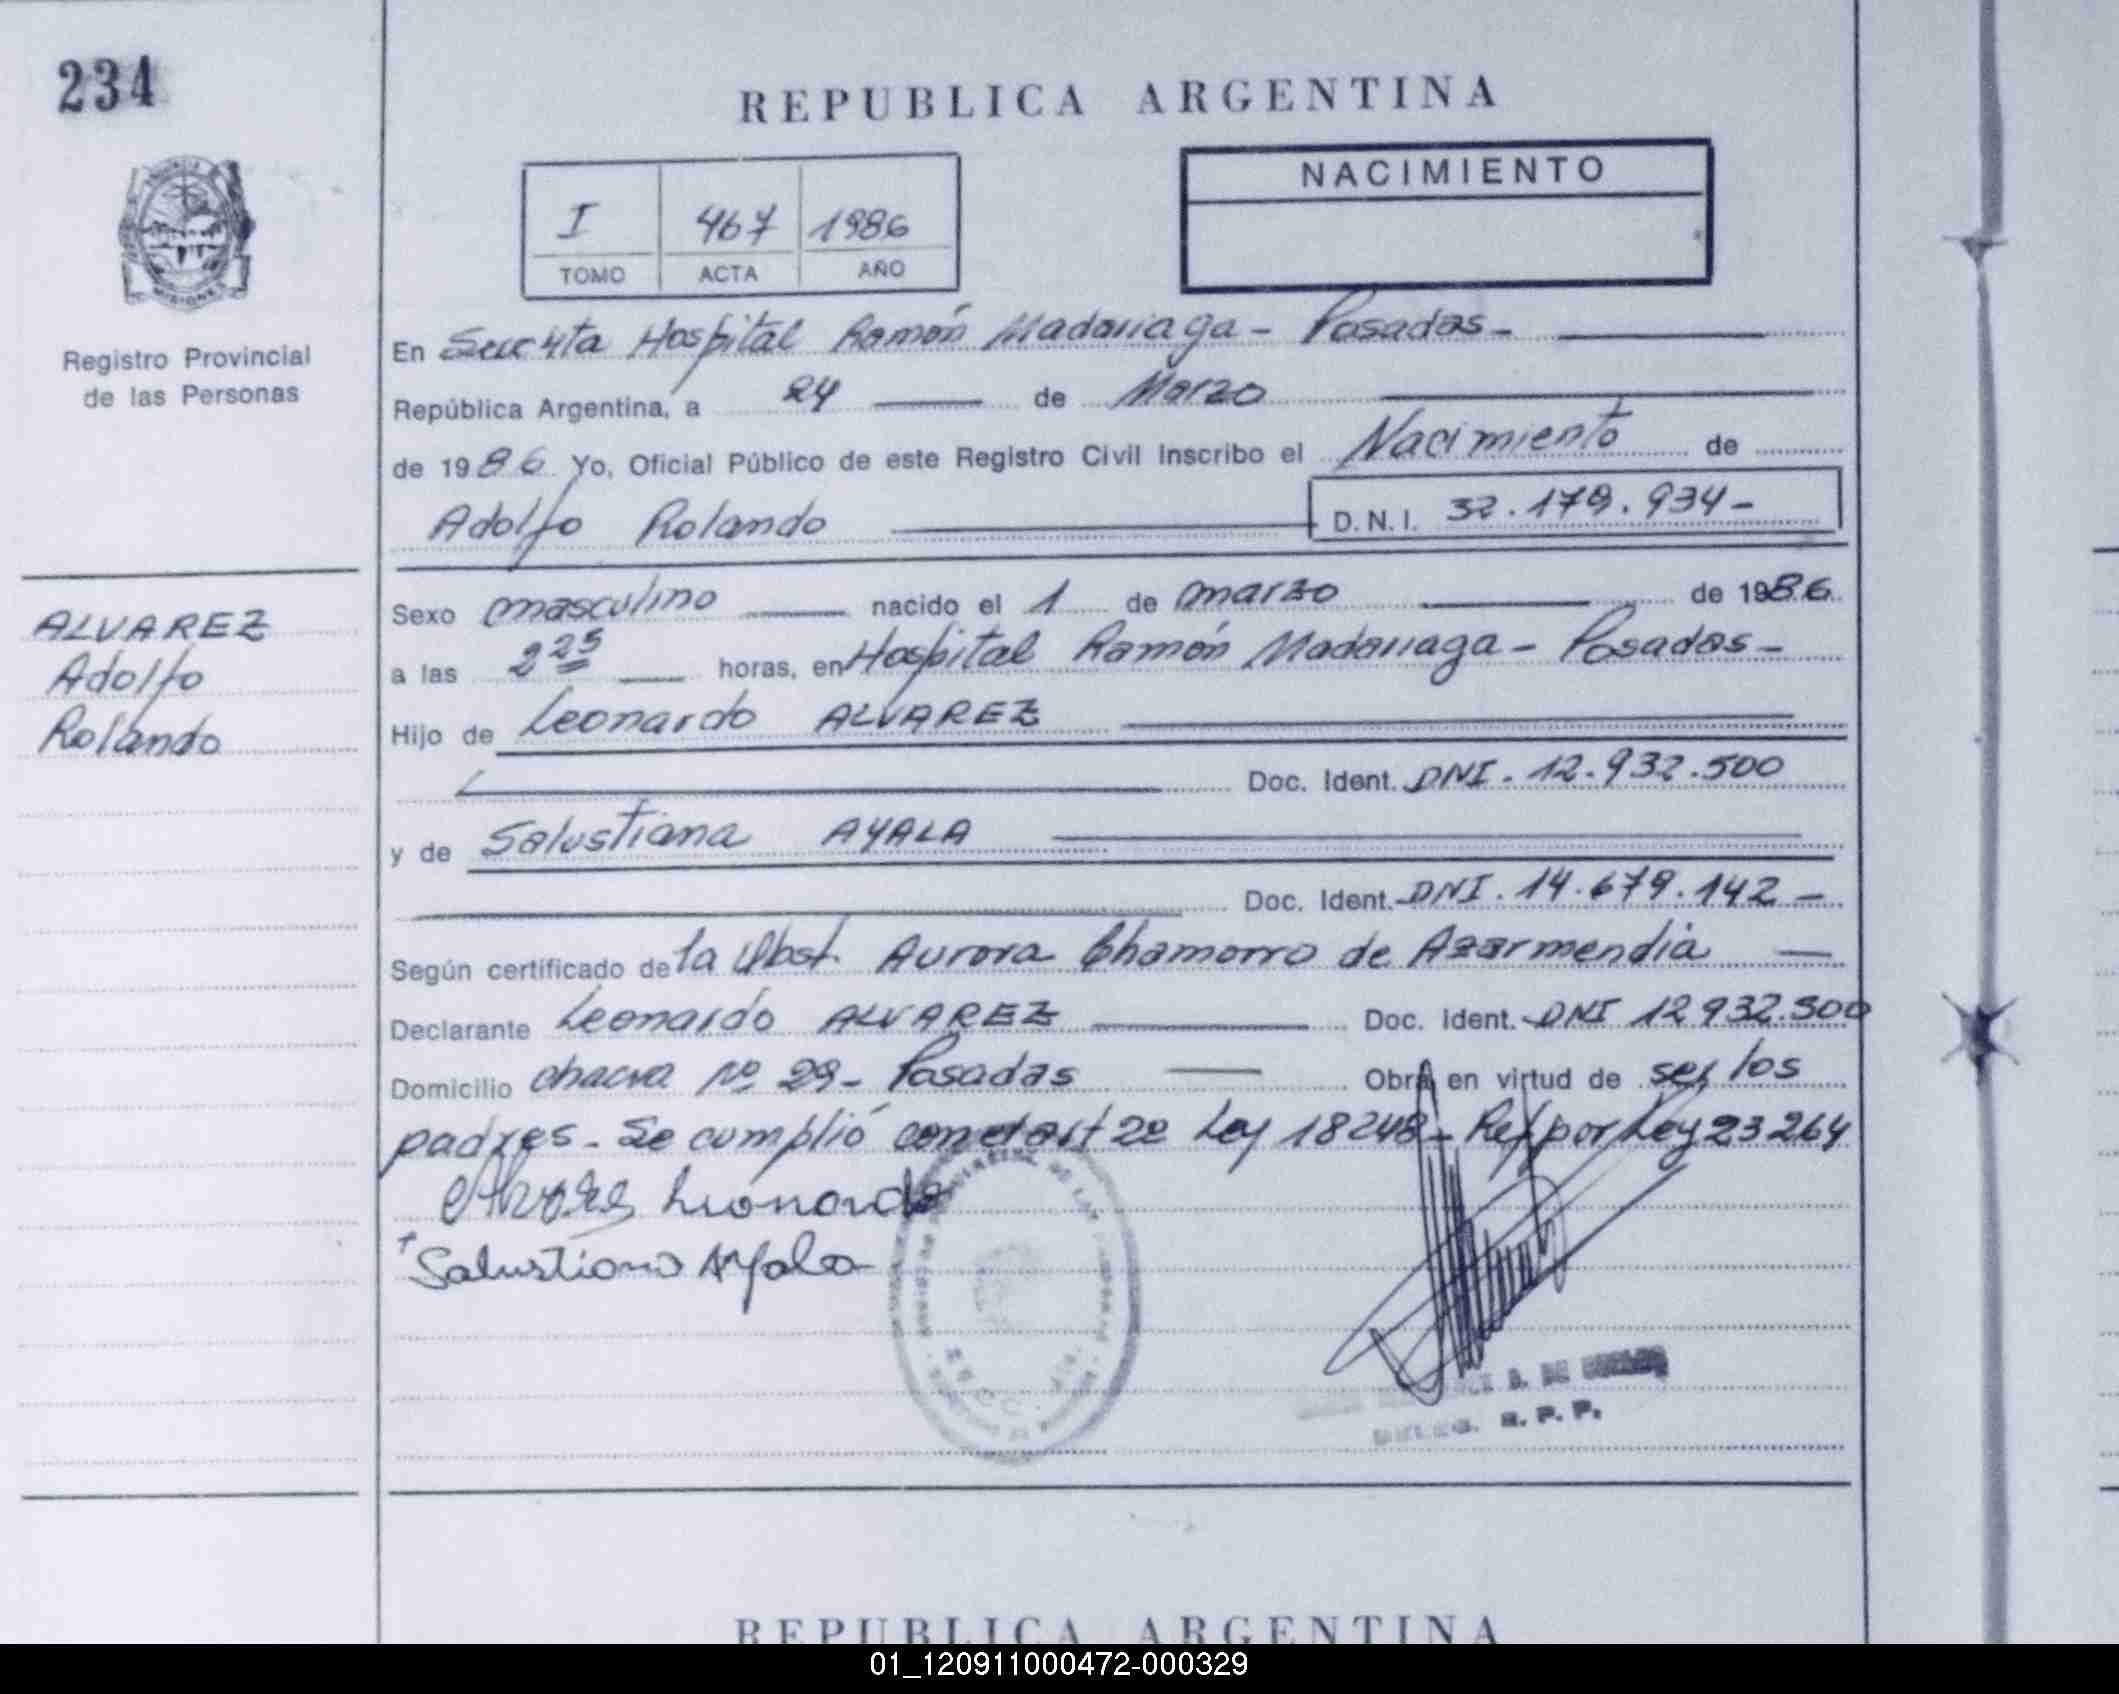 234
REPUBLICA ARGENTINA
I 467 1986
TOMO ACTA AÑO
NACIMIENTO
MISIONES
Registro Provincial
de las Personas
En Secc 4ta Hospital Ramón Madariaga - Posadas -
República Argentina, a 24 de Marzo
de 1986 Yo, Oficial Público de este Registro Civil Inscribo el Nacimiento de
Adolfo Rolando D.N.I. 32.179.934-
ALVAREZ
Adolfo
Rolando
Sexo masculino nacido el 1 de marzo de 1986.
a las 2 25 horas, en Hospital Ramón Madariaga - Posadas -
Hijo de Leonardo ALVAREZ
Doc. Ident. DNI. 12.932.500
y de Salustiana AYALA
Doc. Ident. DNI. 14.679.142 -
Según certificado de la Obst. Aurora Chamorro de Azarmendia
Declarante Leonardo ALVAREZ Doc. Ident. DNI 12932.500
Domicilio chacra Nº 29 - Posadas Obra en virtud de ser los
padres - Se cumplió con el art 2º Ley 18248 - Ref por Ley 23264
Alvarez Leonardo
Salustiana Ayala
R. P. P.
REPUBLICA ARGENTINA
01_120911000472-000329